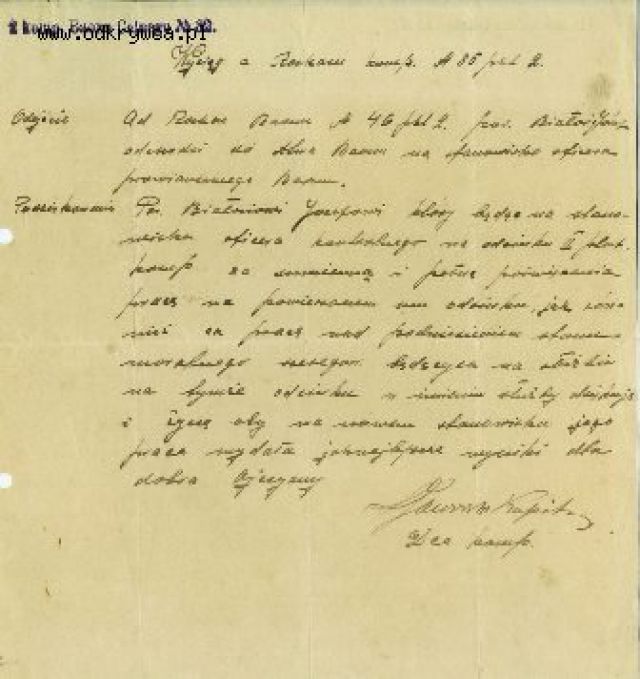 komp. Baonu Celnego № 32.
www.odkrywca.pl
Wyciąg z Rozkazu komp. № 85 pkt 2.
Odejście Od Rozkaz Baonu № 46 pkt 2. por. Białoń Józef
odchodzi do Baonu na stanowisko oficera
prowiantowego Baonu.
Podziękowanie Por. Białoniowi Józefowi który będąc na stano-
wisku oficera kontrolnego na odcinku II plut.
komp. za sumienną i pełną poświęcenia
pracę na powierzonem mu odcinku, jak rów-
nież za pracę nad podniesieniem stanu
moralnego szeregow. będących na służbie
na tymże odcinku w imieniu służby dziękuję
i życzę aby na nowem stanowisku jego
praca wydała jaknajlepsze wyniki dla
dobra Ojczyzny
Kapitan
Dca komp.